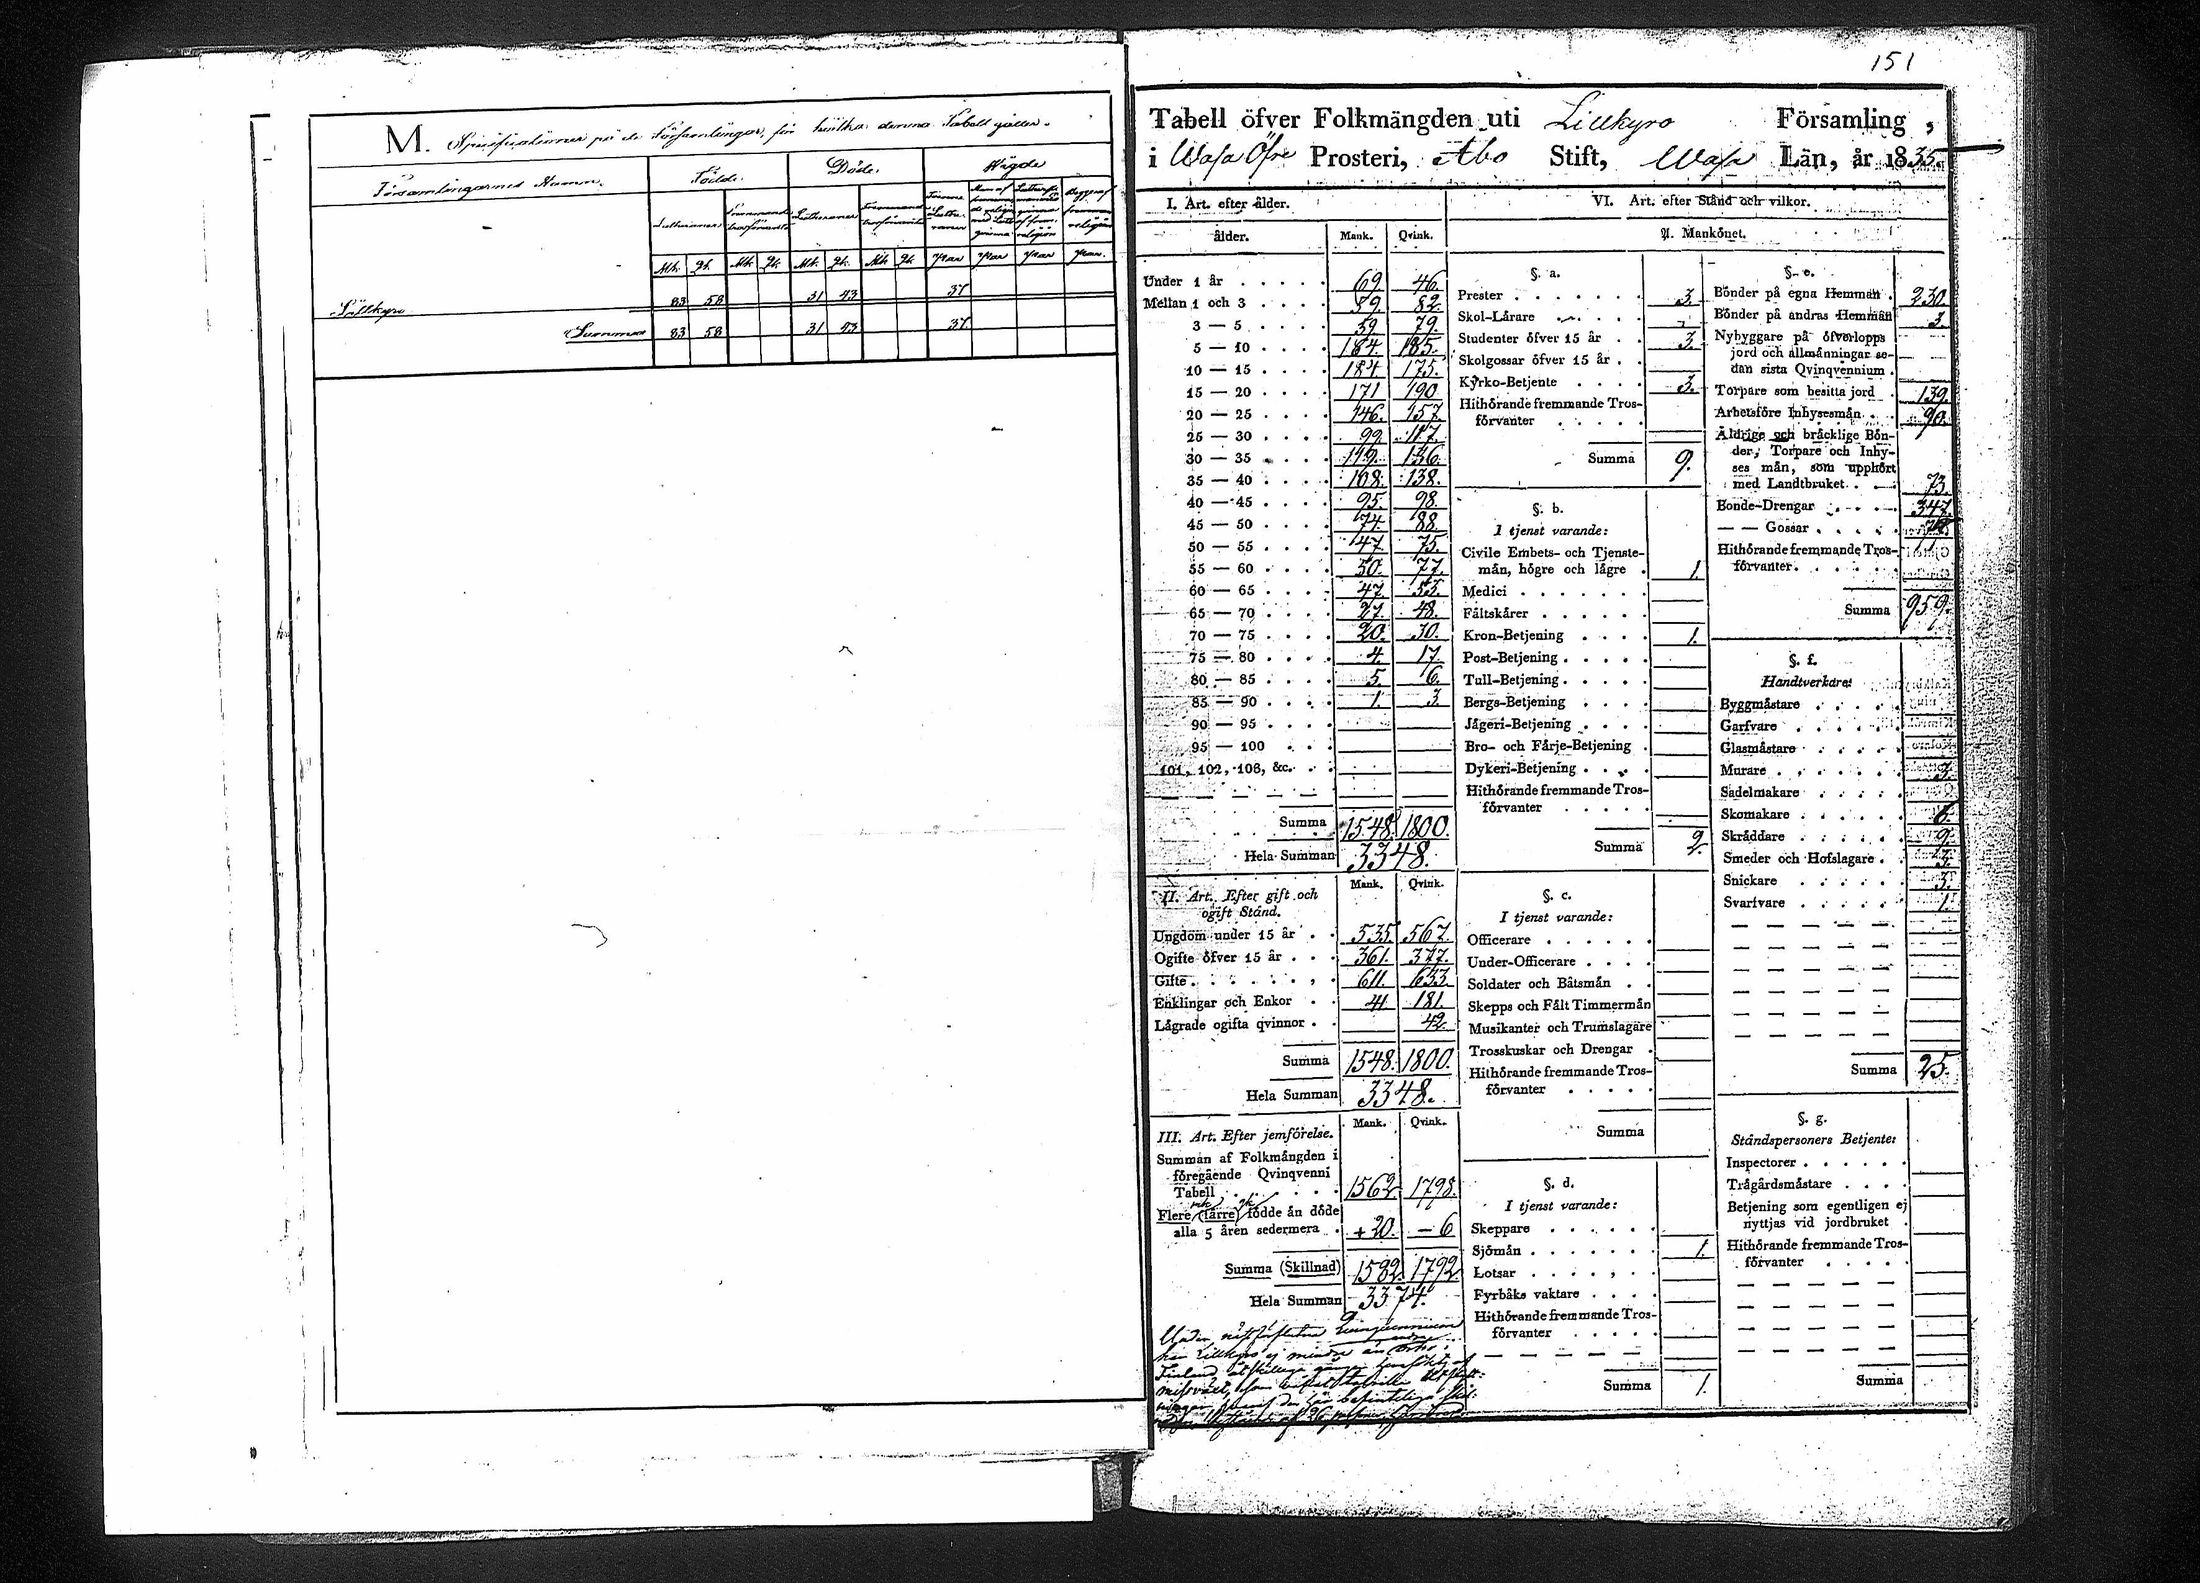 M. Specificationer på de Församlingar, för hvilka denna Tabell gäller.
Församlingarnes Namn.
Födde.
Döde.
Wigde
Lutheraner
Fremmande trosförvanter
Lutheraner
Fremmande trosförvanter
Mk. Qk. Mk. Qk. Mk. Qk. Mk. Qk. Par Par Par Par
Lillkyro 83 58 31 43 37
Summa 83 58 31 43 37
151
Tabell öfver Folkmängden uti Lillkyro Församling,
i Wasa Öfre Prosteri, Åbo Stift, Wasa Län, år 1835.
I. Art. efter ålder.
ålder. Mank. Qvink.
Under 1 år 69 46
Mellan 1 och 3 89. 82.
3 — 5 59 79.
5 — 10 184. 185.
10 — 15 184 175.
15 — 20 171 190
20 — 25 146. 157.
25 — 30 99 117.
30 — 35 119. 136.
35 — 40 108. 138.
40 — 45 95. 98.
45 — 50 74. 88.
50 — 55 47. 75.
55 — 60 50. 77.
60 — 65 47. 53.
65 — 70 27. 48.
70 — 75 20. 30.
75 — 80 4. 17.
80 — 85 5. 6.
85 — 90 1. 3.
90 — 95
95 — 100
101, 102, 103, &c.
Summa 1548. 1800.
Hela Summan 3348.
II. Art. Efter gift och
ogift Stånd.
Mank. Qvink.
Ungdom under 15 år 535 567.
Ogifte öfver 15 år 361. 377.
Gifte 611. 633.
Enklingar och Enkor 41 181.
Lägrade ogifta qvinnor 42.
Summa 1548. 1800.
Hela Summan 3348.
III. Art. Efter jemförelse.
Mank. Qvink.
Summan af Folkmängden i
föregående Qvinqvenni
Tabell 1562 1798.
mk qk
Flere (färre) födde än döde
alla 5 åren sedermera + 20. — 6
Summa (Skillnad) 1582. 1792
Hela Summan 3374.
Under
har Lillkyro ej mindre än
Finland
VI. Art. efter Stånd och vilkor.
A. Mankönet.
§. a.
Prester 3.
Skol-Lärare
Studenter öfver 15 år 3.
Skolgossar öfver 15 år
Kyrko-Betjente 3.
Hithörande fremmande Tros-
förvanter
Summa 9.
§. b.
I tjenst varande:
Civile Embets- och Tjenste-
män, högre och lägre 1.
Medici
Fältskärer
Kron-Betjening 1.
Post-Betjening
Tull-Betjening
Bergs-Betjening
Jägeri-Betjening
Bro- och Färje-Betjening
Dykeri-Betjening
Hithörande fremmande Tros-
förvanter
Summa 2.
§. c.
I tjenst varande:
Officerare
Under-Officerare
Soldater och Båtsmän
Skepps och Fält Timmermän
Musikanter och Trumslagare
Trosskuskar och Drengar
Hithörande fremmande Tros-
förvanter
Summa
§. d.
I tjenst varande:
Skeppare
Sjömän 1.
Lotsar
Fyrbåks vaktare
Hithörande fremmande Tros-
förvanter
Summa 1.
§. e.
Bönder på egna Hemman 230.
Bönder på andras Hemman 3.
Nybyggare på öfverlopps
jord och allmänningar se-
dan sista Qvinqvennium
Torpare som besitta jord 139.
Arbetsföre Inhysesmän 90.
Åldrige och bräcklige Bön-
der, Torpare och Inhy-
ses män, som upphört
med Landtbruket 73.
Bonde-Drengar 347.
— — Gossar
Hithörande fremmande Tros-
förvanter
Summa 959.
§. f.
Handtverkare:
Byggmästare
Garfvare
Glasmästare
Murare 3.
Sadelmakare
Skomakare 6.
Skräddare 9.
Smeder och Hofslagare 3.
Snickare 3.
Svarfvare 1.
Summa 25.
§. g.
Ståndspersoners Betjente:
Inspectorer
Trägårdsmästare
Betjening som egentligen ej
nyttjas vid jordbruket
Hithörande fremmande Tros-
förvanter
Summa